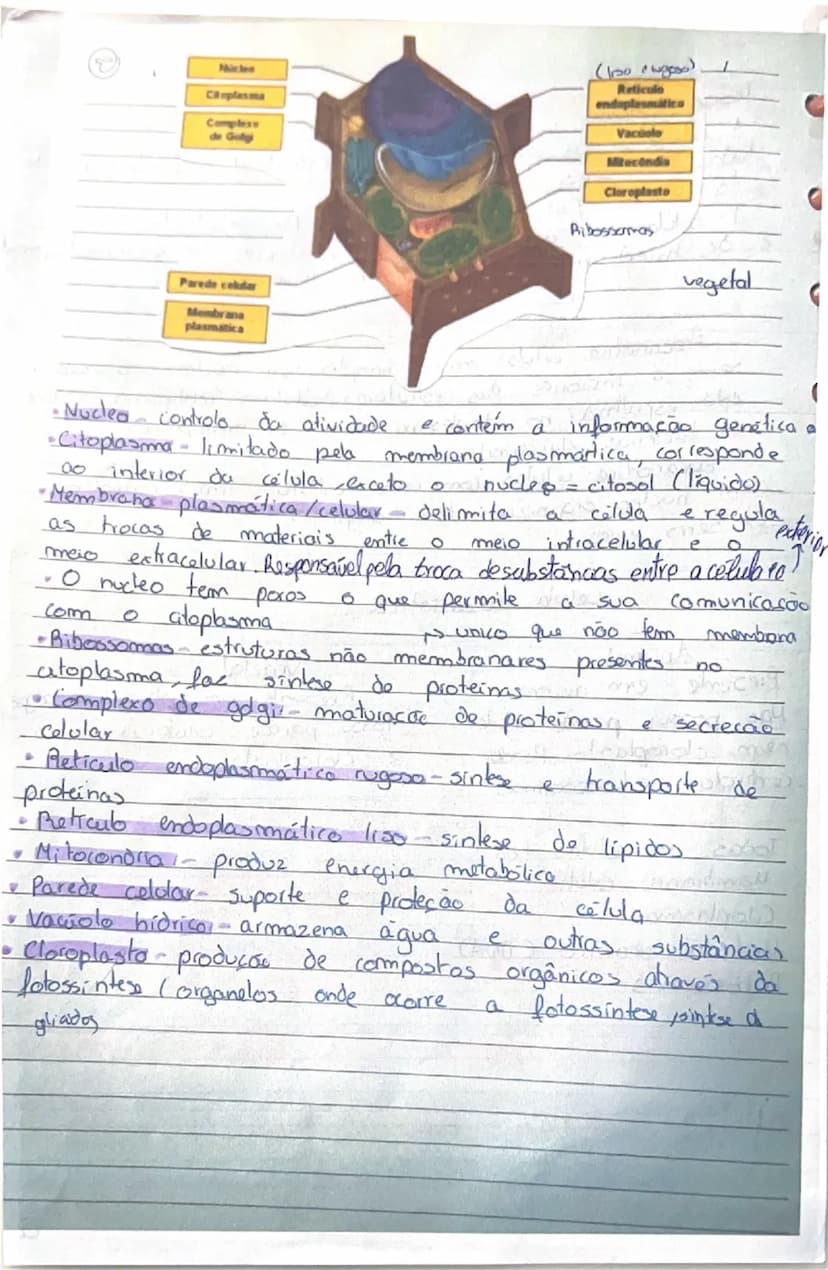 Núcleo
Citoplasma
Complexo
de Golgi
Parede celular
Membrana
plasmática
(liso e rugoso)
Retículo
endoplasmático
Vacúolo
Mitocôndia
Cloroplasto
Ribossomas
vegetal
• Nucleo - controlo da atividade e contém a informação genética
• Citoplasma - limitado pela membrana plasmártica, corresponde
ao interior da célula, exceto o nucleo = citosol (líquido)
• Membrana - plasmática/celular - delimita a célula e regula
as trocas de materiais entre o meio intracelular e o
exterior
meio extracelular. Responsável pela troca de substâncias entre a célula e o
• O nucleo tem poros o que permite a sua comunicação
com o citoplasma
↱ unico que não tem membrana
• Ribossomas - estruturas não membranares presentes no
citoplasma, faz síntese de proteinas
• Complexo de golgi - maturação de proteinas e secreção
celular
• Retículo endoplasmático rugoso - síntese e transporte de
proteinas
• Retículo endoplasmático liso - síntese de lípidos
• Mitocondria - produz energia metabólica
• Parede celular - suporte e proteção da célula
• Vacúolo hídrico - armazena água e outras substâncias
• Cloroplasto - produção de compostos orgânicos através da
fotossíntese (organelos onde ocorre a fotossíntese, síntese d